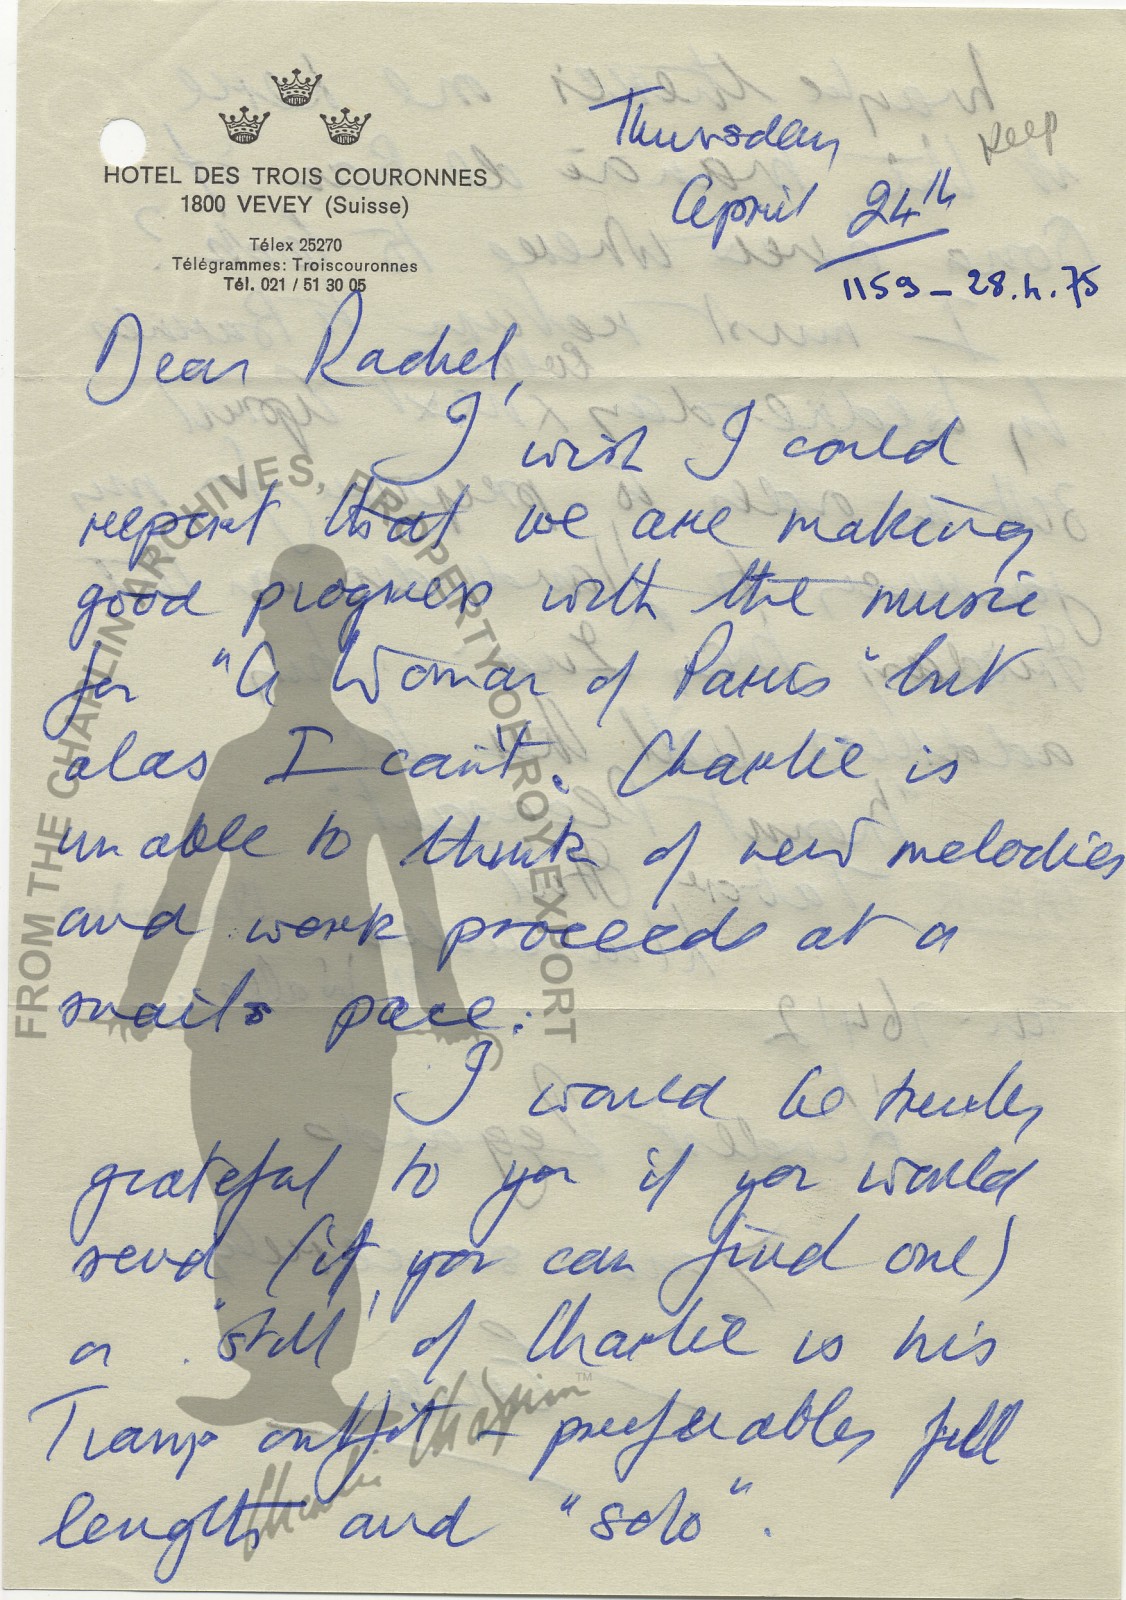 HOTEL DES TROIS COURONNES
1800 VEVEY (Suisse)
Télex 25270
Télégrammes: Troiscouronnes
Tél. 021 / 51 30 05
Thursday
April 24th
Keep
1159 - 28.4.75
Dear Rachel,
I wish I could
report that we are making
good progress with the music
for "A Woman of Paris" but
alas I can't. Charlie is
unable to think of new melodies
and work proceeds at a
snails pace.
I would be truly
grateful to you if you would
send (if you can find one)
a "still" of Charlie is his
Tramp outfit - preferably full
length and "solo".
FROM THE CHAPLIN ARCHIVES, PROPERTY OF ROY EXPORT
Charlie Chaplin™